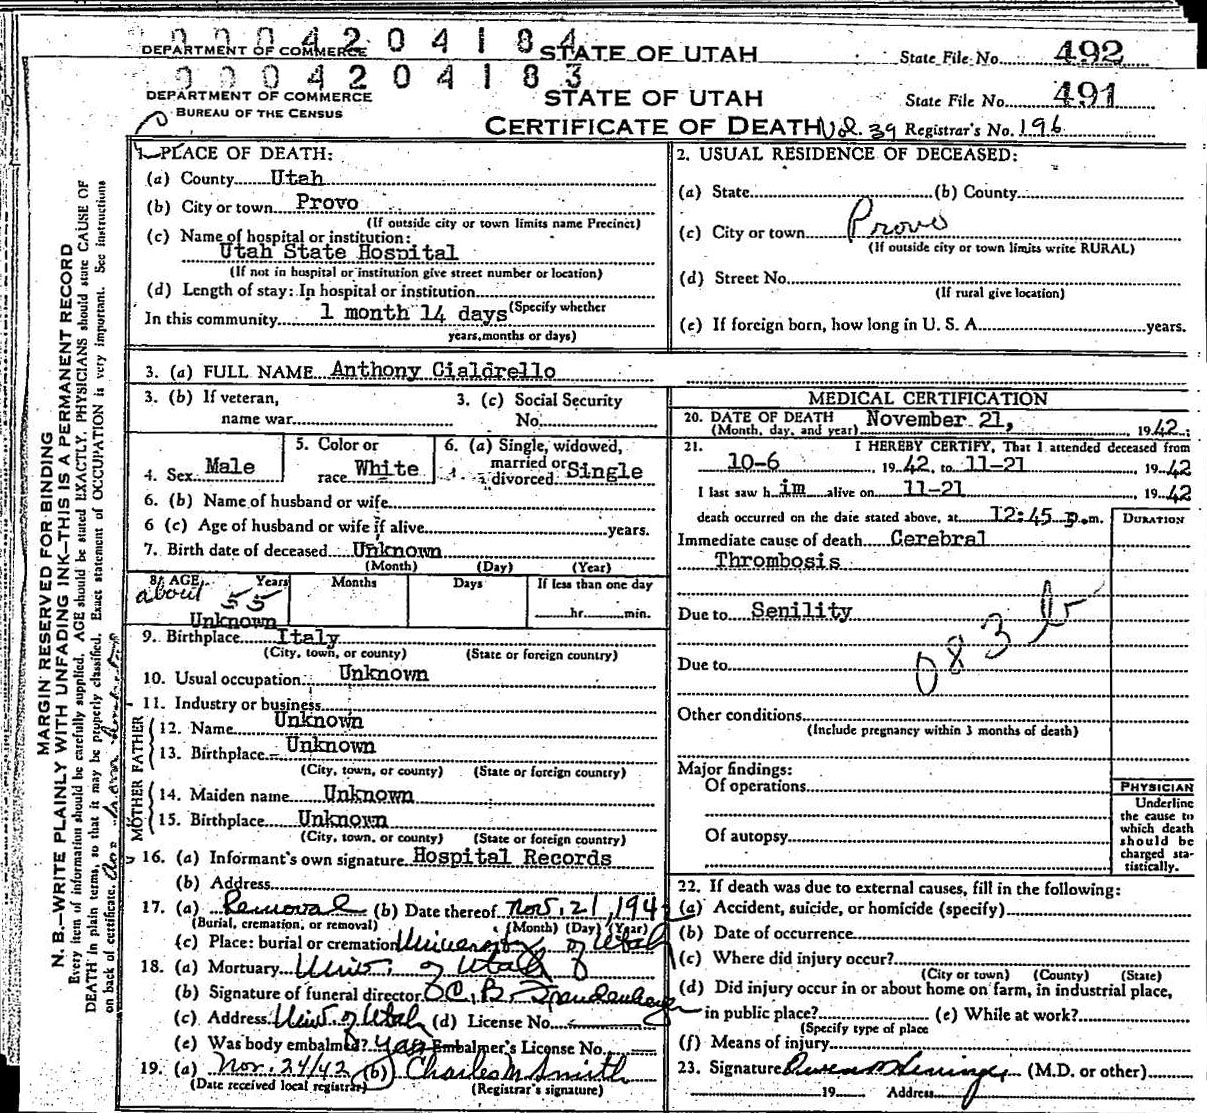 0004204184
DEPARTMENT OF COMMERCE STATE OF UTAH State File No. 492
0004204183
DEPARTMENT OF COMMERCE STATE OF UTAH State File No. 491
BUREAU OF THE CENSUS CERTIFICATE OF DEATH Vol. 39 Registrar's No. 196
1. PLACE OF DEATH:
(a) County Utah
(b) City or town Provo
(If outside city or town limits name Precinct)
(c) Name of hospital or institution:
Utah State Hospital
(If not in hospital or institution give street number or location)
(d) Length of stay: In hospital or institution
(Specify whether
In this community 1 month 14 days
years, months or days)
2. USUAL RESIDENCE OF DECEASED:
(a) State (b) County
(c) City or town Provo
(If outside city or town limits write RURAL)
(d) Street No.
(If rural give location)
(e) If foreign born, how long in U. S. A. years.
3. (a) FULL NAME Anthony Cialdrello
3. (b) If veteran, name war
3. (c) Social Security No.
4. Sex Male
5. Color or race White
6. (a) Single, widowed, married or divorced. Single
6. (b) Name of husband or wife
6 (c) Age of husband or wife if alive years.
7. Birth date of deceased Unknown
(Month) (Day) (Year)
8. AGE Years Months Days If less than one day
about 55
Unknown hr. min.
9. Birthplace Italy
(City, town, or county) (State or foreign country)
10. Usual occupation Unknown
11. Industry or business
FATHER
12. Name Unknown
13. Birthplace Unknown
(City, town, or county) (State or foreign country)
MOTHER
14. Maiden name Unknown
15. Birthplace Unknown
(City, town, or county) (State or foreign country)
16. (a) Informant's own signature Hospital Records
(b) Address
17. (a) Removal (b) Date thereof Nov. 21, 194
(Burial, cremation, or removal) (Month) (Day) (Year)
(c) Place: burial or cremation University of Utah
18. (a) Mortuary Univ. of Utah
(b) Signature of funeral director C. B.
(c) Address Univ of Utah (d) License No.
(e) Was body embalmed? Embalmer's License No.
19. (a) Nov. 24/42 (b) Charles M Smith
(Date received local registrar) (Registrar's signature)
MEDICAL CERTIFICATION
20. DATE OF DEATH November 21, 1942
(Month, day, and year)
21. I HEREBY CERTIFY, That I attended deceased from
10-6 1942, to 11-21 1942
I last saw him alive on 11-21 1942
death occurred on the date stated above, at 12:45 p.m. DURATION
Immediate cause of death Cerebral
Thrombosis
Due to Senility
083 b
Due to
Other conditions
(Include pregnancy within 3 months of death)
Major findings:
Of operations
Of autopsy
PHYSICIAN
Underline
the cause to
which death
should be
charged sta-
tistically.
22. If death was due to external causes, fill in the following:
(a) Accident, suicide, or homicide (specify)
(b) Date of occurrence
(c) Where did injury occur?
(City or town) (County) (State)
(d) Did injury occur in or about home on farm, in industrial place,
in public place? (e) While at work?
(Specify type of place
(f) Means of injury
23. Signature (M.D. or other)
19 Address
MARGIN RESERVED FOR BINDING
N. B.—WRITE PLAINLY WITH UNFADING INK—THIS IS A PERMANENT RECORD
Every item of information should be carefully supplied. AGE should be stated EXACTLY. PHYSICIANS should state CAUSE OF
DEATH in plain terms, so that it may be properly classified. Exact statement of OCCUPATION is very important. See instructions
on back of certificate.